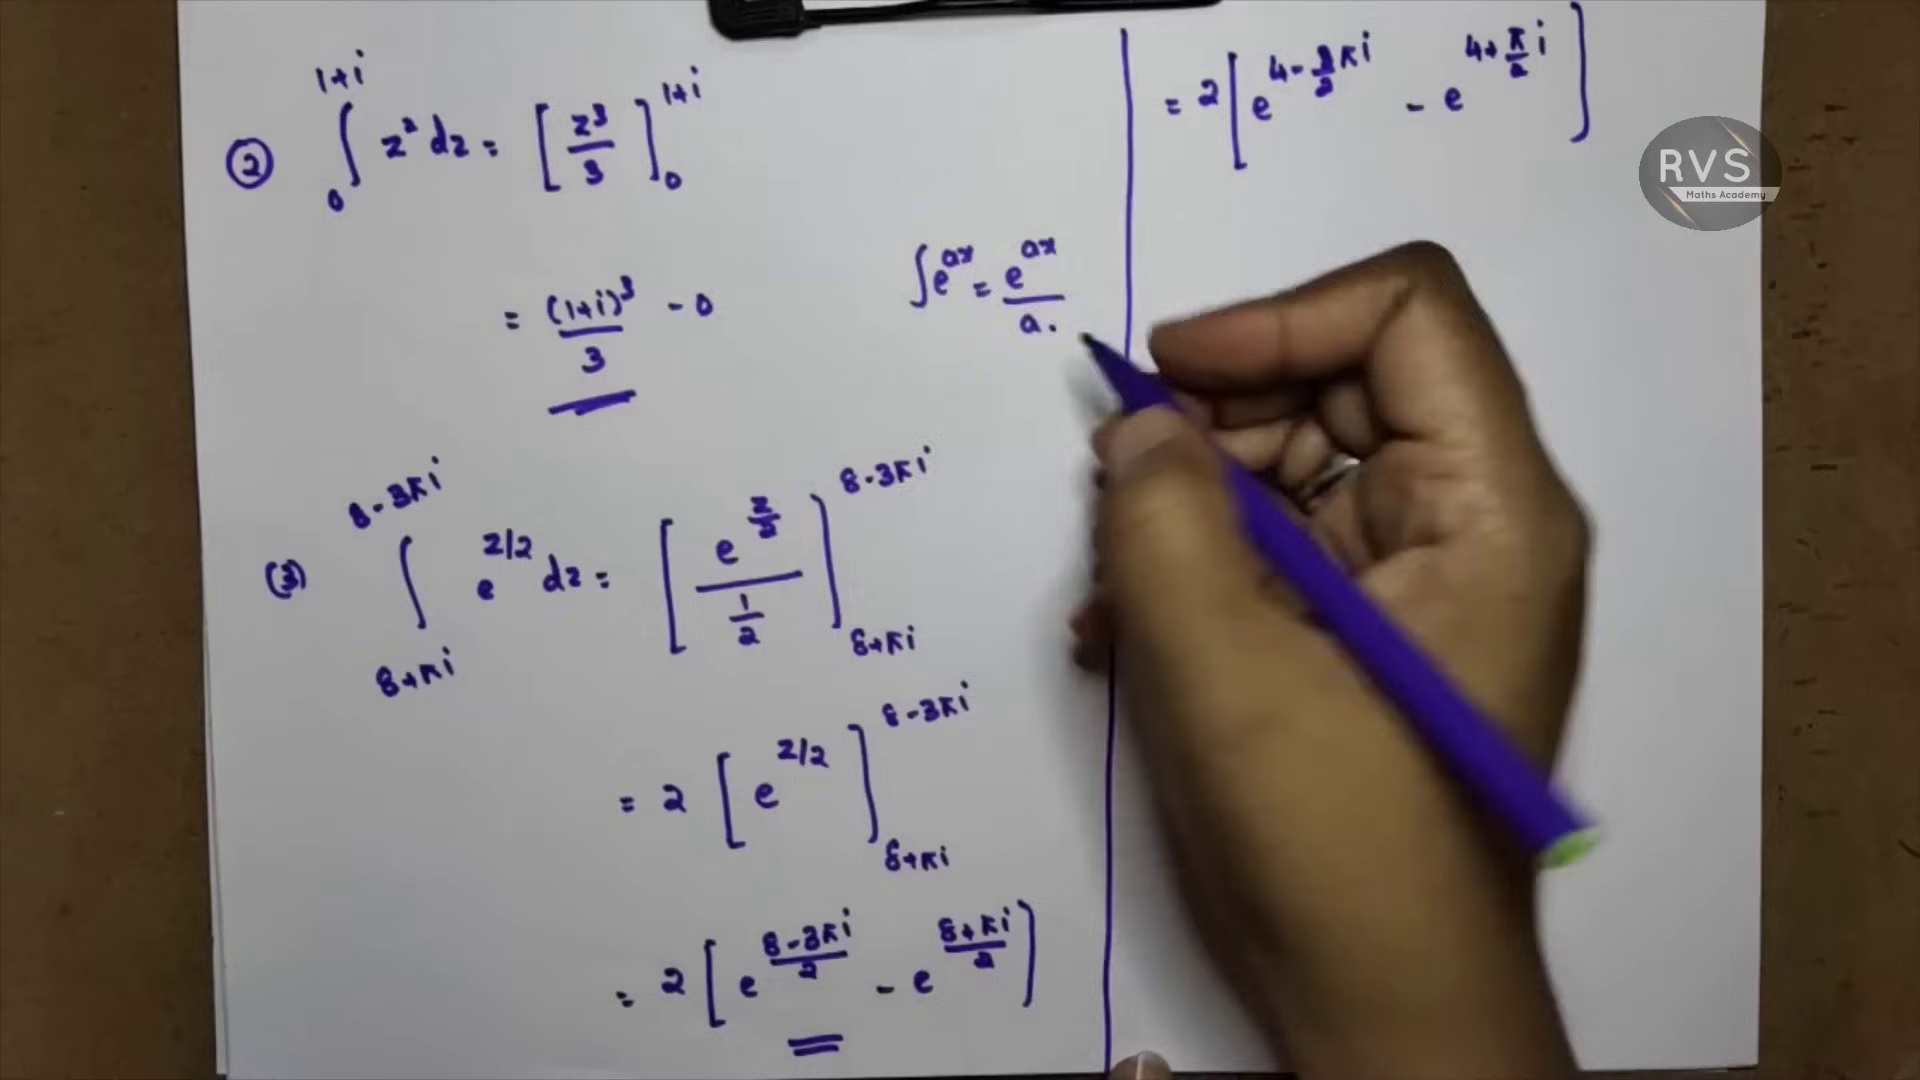 ② ∫₀^{1+i} z² dz = [z³/3]₀^{1+i}
= (1+i)³/3 - 0
∫e^{ax} = e^{ax}/a.
(3) ∫_{8+πi}^{8-3πi} e^{z/2} dz = [e^{z/2}/(1/2)]_{8+πi}^{8-3πi}
= 2 [e^{z/2}]_{8+πi}^{8-3πi}
= 2 [e^{(8-3πi)/2} - e^{(8+πi)/2}]
= 2 [e^{4-3/2 πi} - e^{4+π/2 i}]
RVS
Maths Academy